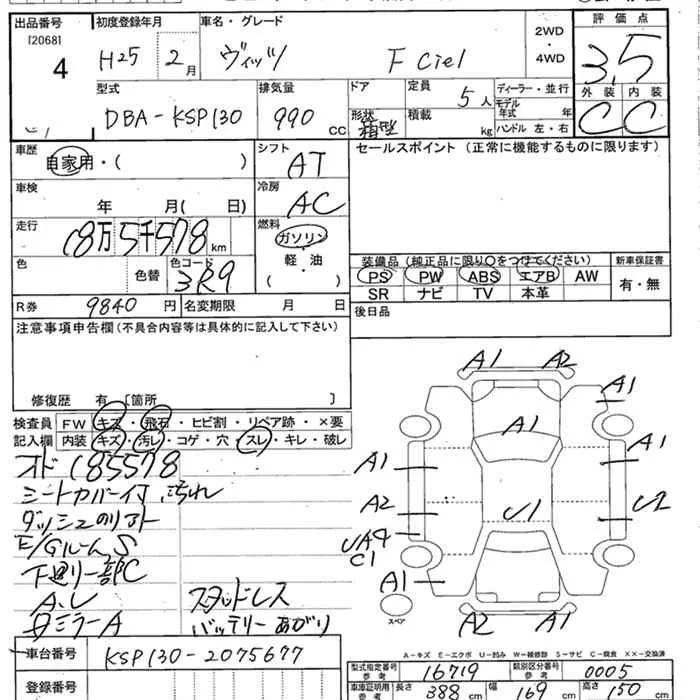 出品番号 初度登録年月 車名・グレード 評価点
[2068]
4 H25 2月 ヴィッツ F Ciel 2WD・4WD 3.5
型式 排気量 ドア 定員 ディーラー・並行 外装 内装
DBA-KSP130 990 cc 形状 箱型 5人 積載 kg モデル年式 年 ハンドル 左・右 C C
車歴 自家用・( ) シフト AT セールスポイント (正常に機能するものに限ります)
車検 年 月( 日) 冷房 AC
走行 18万5千578km 燃料 ガソリン・軽・油 ( )
色 色替 色コード 3R9
装備品 (純正品に限り○をつけてください) 新車保証書
PS PW ABS エアB AW 有・無
SR ナビ TV 本革
R券 9840円 名変期限 月 日 後日品
注意事項申告欄(不具合内容等は具体的に記入して下さい)
修復歴 有 〔箇所 〕
検査員 FW キズ・飛石・ヒビ割・リペア跡・×要
記入欄 内装 キズ・汚レ・コゲ・穴・スレ・キレ・破レ
オド185578
シートカバー付 汚れ
ダッシュのリアト
E/GルームS
下廻り一部C
A.L スタッドレス
Bミラー A バッテリーあがり
A1 A2
A1
A1
A1 A1
A2 U1 U2
UA4
C1
A1
スペア
A2 A1
A-キズ E-エクボ U-凹み W-補修跡 S-サビ C-腐食 XX-交換済
車台番号 KSP130-2075677
型式指定番号 参考 16719 類別区分番号 参考 0005
登録番号
車庫証明用 参考 長さ 388cm 幅 169cm 高さ 150cm